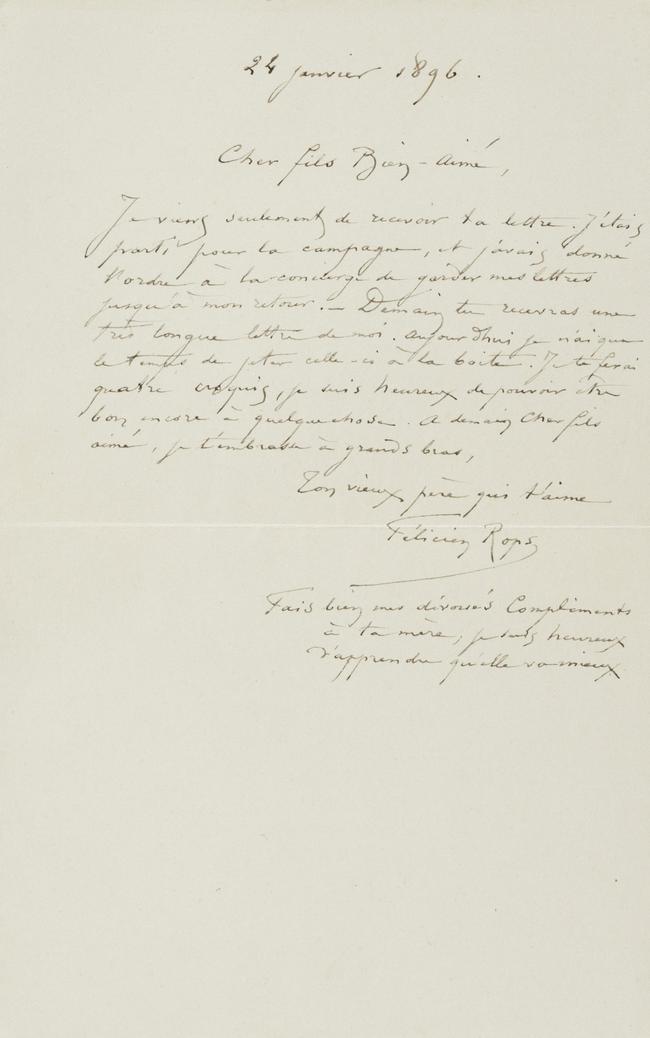 24 janvier 1896.
Cher fils Bien-Aimé,
Je viens seulement de recevoir ta lettre. J'étais
parti pour la campagne, et j'avais donné
l'ordre à la concierge de garder mes lettres
jusqu'à mon retour. — Demain tu recevras une
très longue lettre de moi. aujourd'hui je n'ai que
le temps de jeter celle-ci à la boîte. Je te ferai
quatre croquis, je suis heureux de pouvoir être
bon encore à quelque chose. A demain Cher fils
aimé, je t'embrasse à grands bras,
Ton vieux père qui t'aime
Félicien Rops
Fais bien mes dévoués Compliments
à ta mère, je suis heureux
d'apprendre qu'elle va mieux